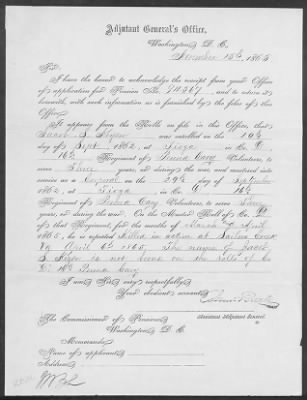 Adjutant General's Office,
Washington, D. C.,
15th, 1865
Sir:
I have the honor to acknowledge the receipt from your Office
of application for Pension No. and to return it
herewith, with such information as is furnished by the files of this
Office.
It appears from the Rolls on file in this Office, that
Jacob S. was enrolled on the
day of Sept, 1862, at Tioga in Co.
16th Regiment of Penna Cavy Volunteers, to
serve three years, or during the war, and mustered into
service as a Corporal on the day of September
1862, at Tioga, in Co. 16th
Regiment of Penna Cavy Volunteers, to serve three
years, or during the war. On the Muster Roll of Co.
of that Regiment, for the months of March & April
1865, he is reported Killed in action at Sailors Creek
Va April 6th 1865. The name of Jacob
S. is not borne on the rolls of Co
16th Penna Cavy
I am, Sir, very respectfully,
Your obedient servant,
Assistant Adjutant General.
The Commissioner of Pensions,
Washington, D. C.
Memoranda:
Name of applicant
Address